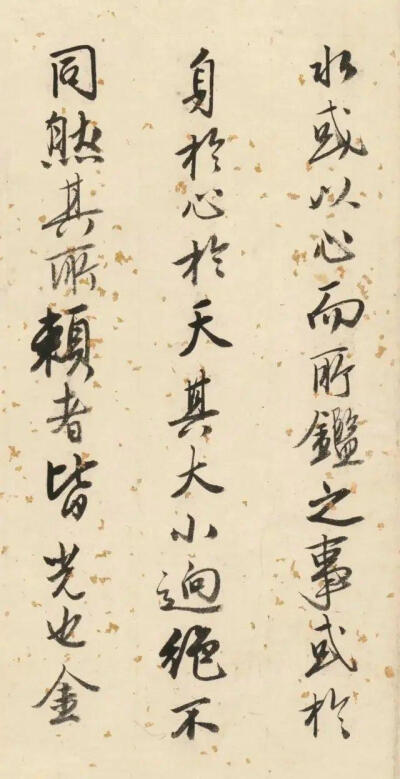 水或以心而所鑑之事或於
身於心於天其大小迥絶不
同然其所賴者皆光也金